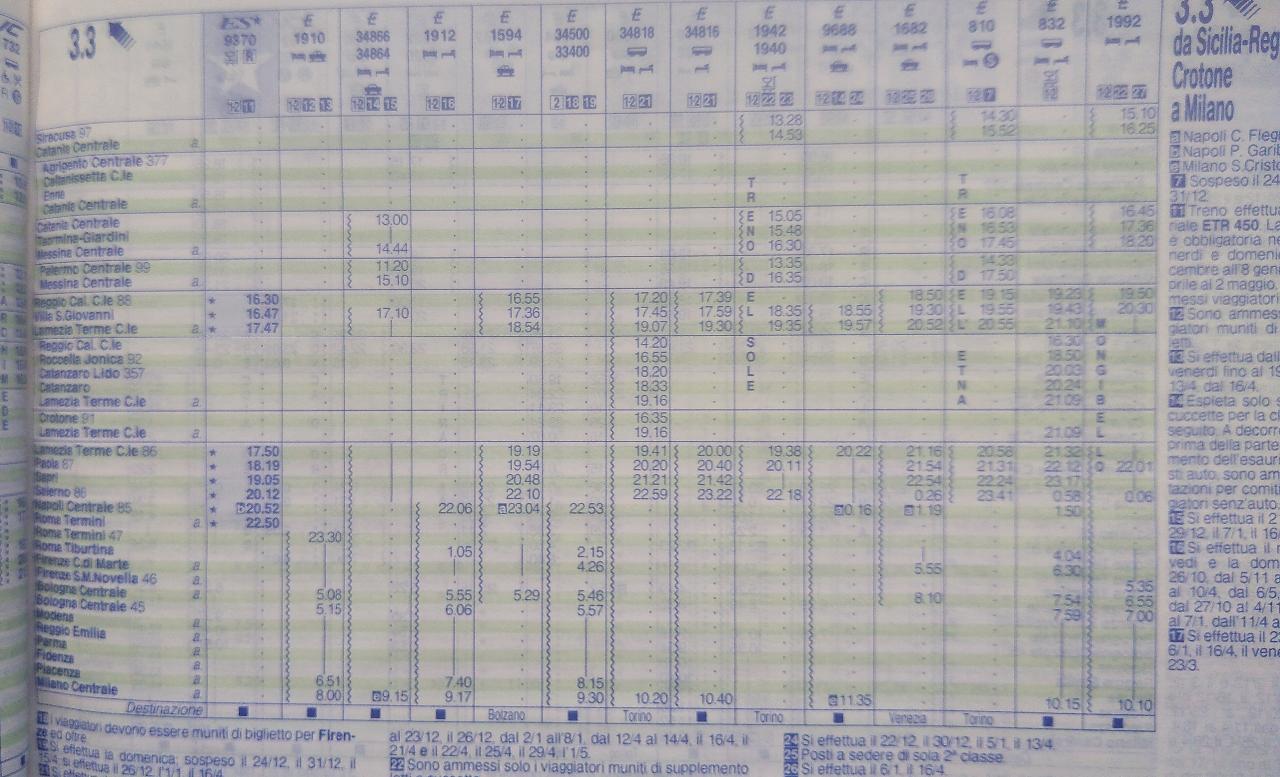 3.3
ES* E E E E E E E E E E E E E
9370 1910 34866 1912 1594 34500 34818 34816 1942 9688 1682 810 832 1992
34864 33400 1940
Siracusa 97 13.28 14.30 15.10
Catania Centrale a. 14.53 15.52 16.25
Agrigento Centrale 377
Caltanissetta C.le
Enna
Catania Centrale a.
Catania Centrale 13.00 15.05 16.08 16.45
Taormina-Giardini 15.48 16.53 17.36
Messina Centrale a. 14.44 16.30 17.45 18.20
Palermo Centrale 99 11.20 13.35 14.33
Messina Centrale a. 15.10 16.35 17.50
TRENO DEL SOLE
TRENO DELL'ETNA
MONGIBELLO
Reggio Cal. C.le 88 16.30 16.55 17.20 17.39 18.50 19.15 19.23 19.50
Villa S.Giovanni 16.47 17.10 17.36 17.45 17.59 18.35 18.55 19.30 19.55 19.43 20.30
Lamezia Terme C.le a. 17.47 18.54 19.07 19.30 19.35 19.57 20.52 20.55 21.10
Reggio Cal. C.le 14.20 16.30
Roccella Jonica 92 16.55 18.50
Catanzaro Lido 357 18.20 20.03
Catanzaro 18.33 20.24
Lamezia Terme C.le a. 19.16 21.09
Crotone 91 16.35
Lamezia Terme C.le a. 19.16 21.09
Lamezia Terme C.le 86 17.50 19.19 19.41 20.00 19.38 20.22 21.16 20.58 21.32
Paola 87 18.19 19.54 20.20 20.40 20.11 21.54 21.31 22.12 22.01
Sapri 19.05 20.48 21.21 21.42 22.54 22.24 23.17
Salerno 86 20.12 22.10 22.59 23.22 22.18 0.26 23.41 0.58 0.06
Napoli Centrale 85 20.52 22.06 23.04 22.53 0.16 1.19 1.50
Roma Termini a. 22.50
Roma Termini 47 23.30
Roma Tiburtina 1.05 2.15 4.04
Firenze C.di Marte a. 4.26 5.55 6.30
Firenze S.M.Novella 46 a. 5.35
Bologna Centrale a. 5.08 5.55 5.29 5.46 8.10 7.54 6.55
Bologna Centrale 45 5.15 6.06 5.57 7.59 7.00
Modena a.
Reggio Emilia a.
Parma a.
Fidenza a.
Piacenza a. 6.51 7.40 8.15
Milano Centrale a. 8.00 9.15 9.17 9.30 10.20 10.40 11.35 10.15 10.10
Destinazione Bolzano Torino Torino Venezia Torino
I viaggiatori devono essere muniti di biglietto per Firen-
ed oltre.
Si effettua la domenica; sospeso il 24/12, il 31/12, il
Si effettua il 26/12, l'1/1, il 16/4.
al 23/12, il 26/12, dal 2/1 all'8/1, dal 12/4 al 14/4, il 16/4, il
21/4 e il 22/4, il 25/4, il 29/4, l'1/5.
22 Sono ammessi solo i viaggiatori muniti di supplemento
24 Si effettua il 22/12, il 30/12, il 5/1, il 13/4.
25 Posti a sedere di sola 2ª classe.
26 Si effettua il 6/1, il 16/4.
3.3
da Sicilia-Reg
Crotone
a Milano
Napoli C. Fleg
Napoli P. Garib
Milano S.Cristo
7 Sospeso il 24
31/12.
11 Treno effettua
riale ETR 450. La
è obbligatoria ne
nerdì e domeni
cembre all'8 gen
prile al 2 maggio.
messi viaggiatori
12 Sono ammess
giatori muniti di
13 Si effettua dall
venerdì fino al 19
13/4 dal 16/4.
14 Espleta solo s
cuccette per la c
seguito. A decorr
prima della parte
mento dell'esauri
sti auto, sono am
tazioni per comiti
giatori senz'auto.
15 Si effettua il 2
29/12, il 7/1, il 16/
16 Si effettua il n
vedì e la dom
26/10, dal 5/11 a
al 10/4, dal 6/5,
dal 27/10 al 4/11
al 7/1, dall'11/4 a
17 Si effettua il 2
6/1, il 16/4, il vene
23/3.